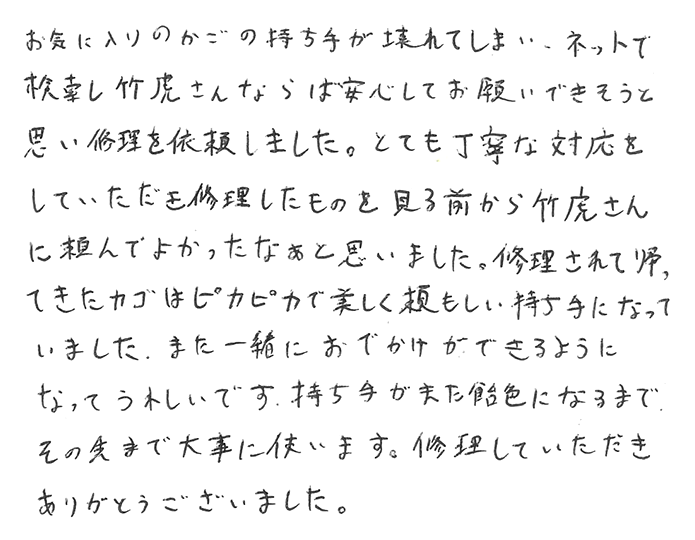 お気に入りのかごの持ち手が壊れてしまい、ネットで
検索し竹虎さんならば安心してお願いできそうと
思い修理を依頼しました。とても丁寧な対応を
していただき修理したものを見る前から竹虎さん
に頼んでよかったなぁと思いました。修理されて帰っ
てきたカゴはピカピカで美しく頼もしい持ち手になって
いました。また一緒におでかけができるように
なってうれしいです。持ち手がまた飴色になるまで、
その先まで大事に使います。修理していただき
ありがとうございました。